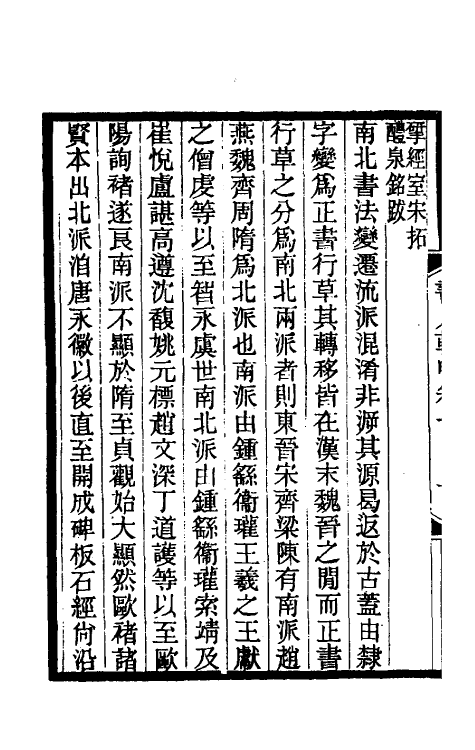 揅經室宋拓
醴泉銘跋
南北書法變遷流派混淆非溯其源曷返於古蓋由隸
字變爲正書行草其轉移皆在漢末魏晉之閒而正書
行草之分爲南北兩派者則東晉宋齊梁陳有南派趙
燕魏齊周隋爲北派也南派由鍾繇衞瓘王羲之王獻
之僧虔等以至智永虞世南北派由鍾繇衞瓘索靖及
崔悅盧諶高遵沈馥姚元標趙文深丁道護等以至歐
陽詢褚遂良南派不顯於隋至貞觀始大顯然歐褚諸
賢本出北派洎唐永徽以後直至開成碑板石經尙沿